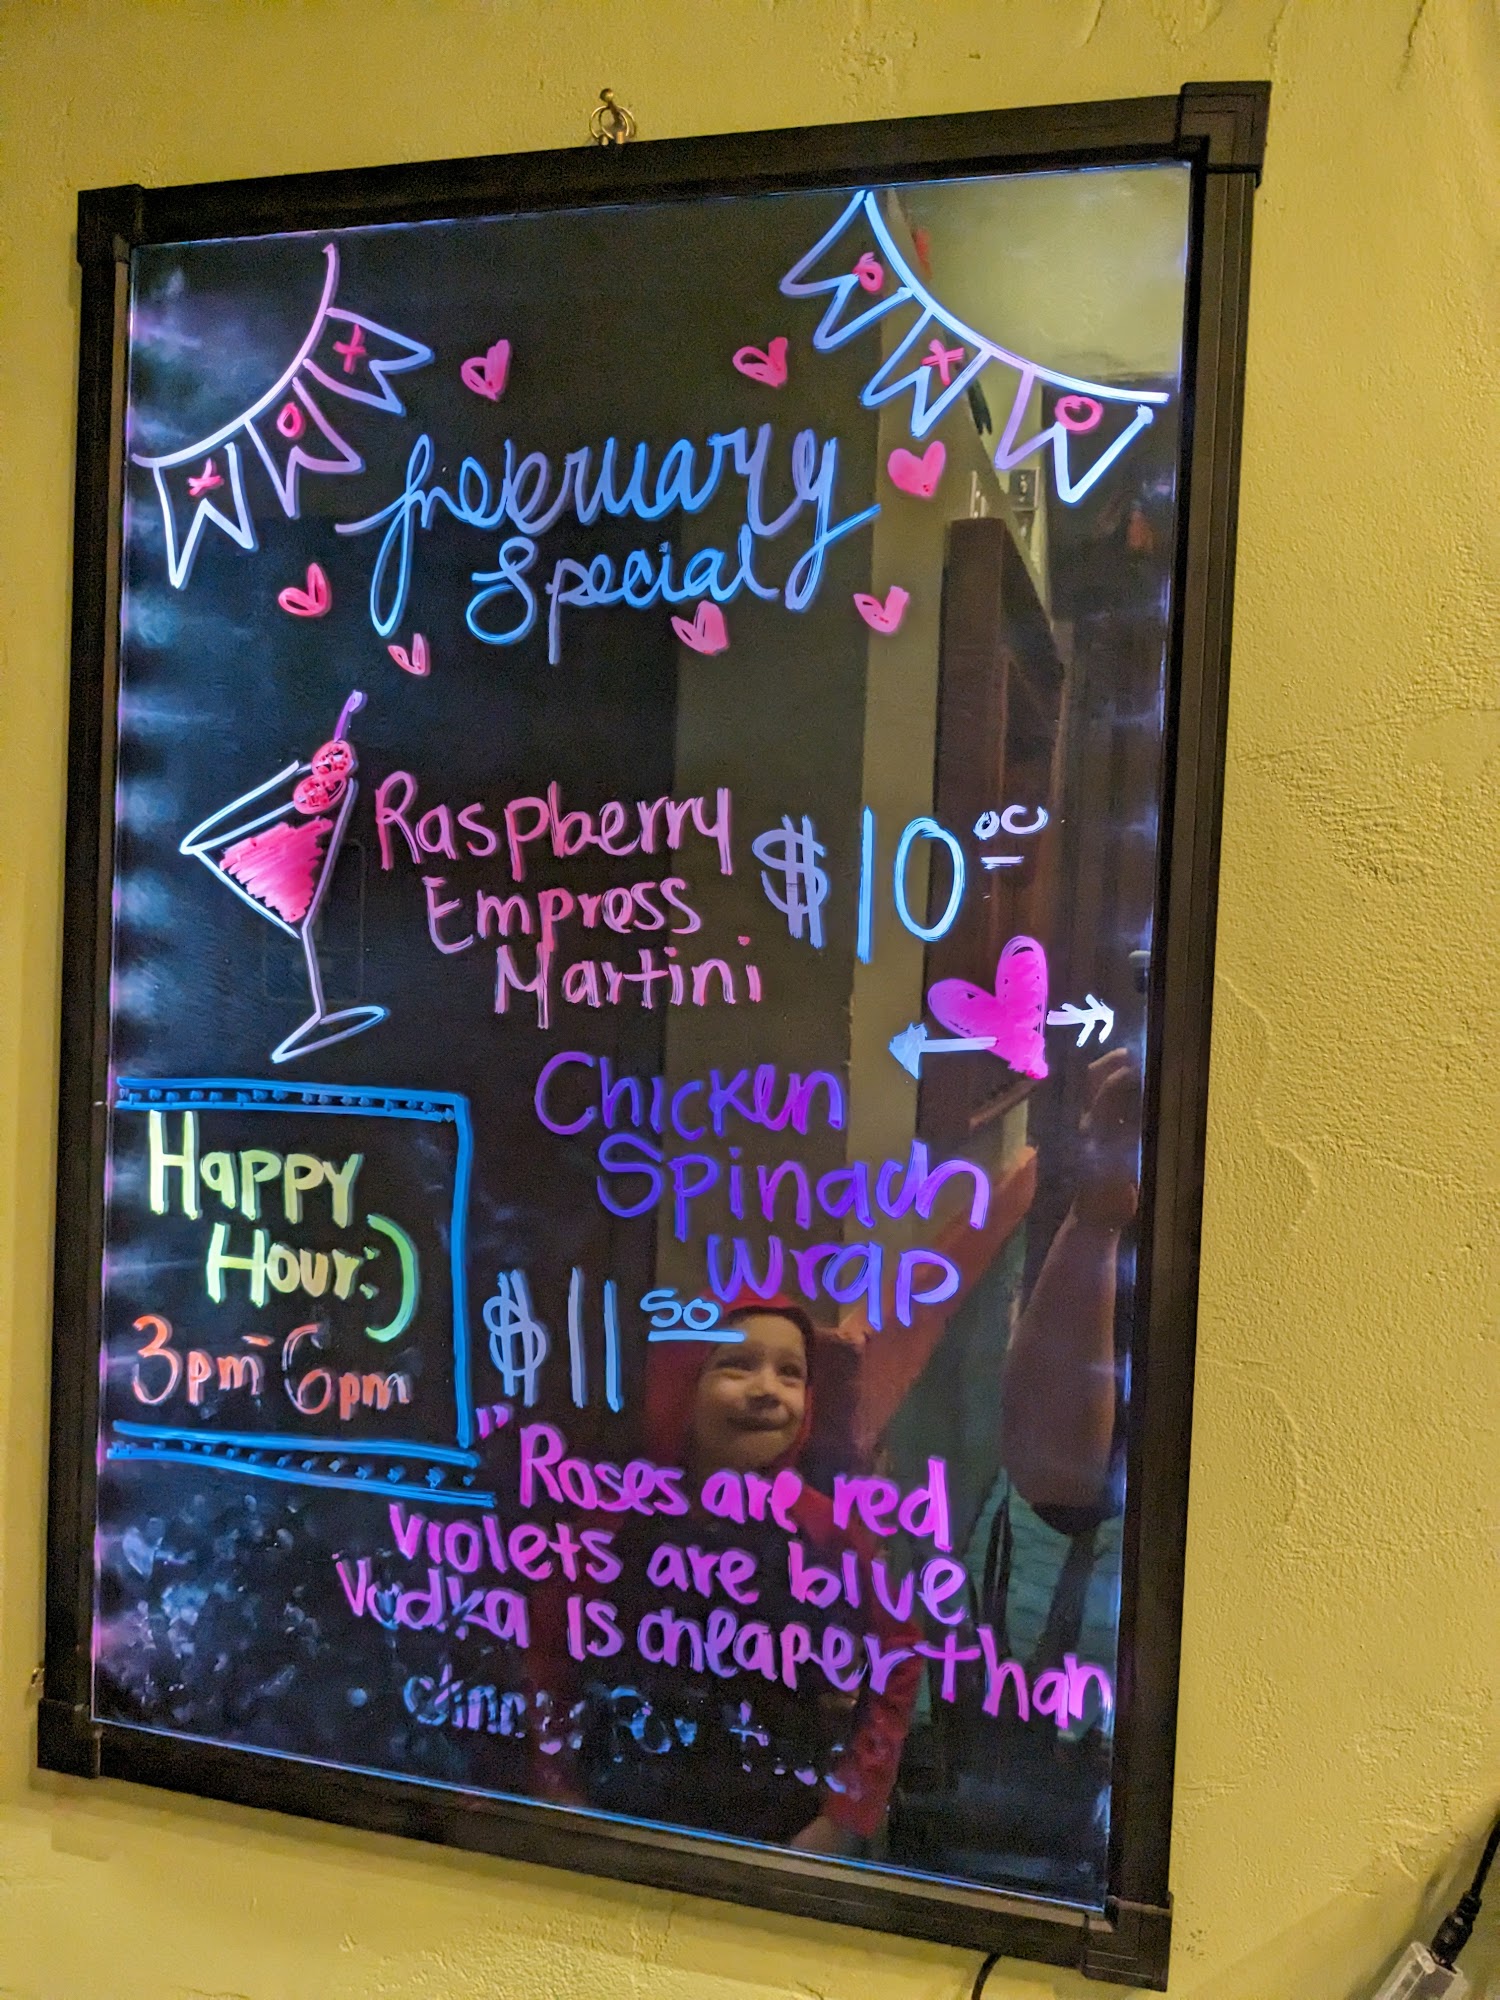 x o x
o x o
february
Special
Raspberry
Empress
Martini
$10 00
Chicken
Spinach
wrap
$11 50
Happy
Hour:)
3pm-6pm
"Roses are red
violets are blue
Vodka is cheaper than
dinner for two